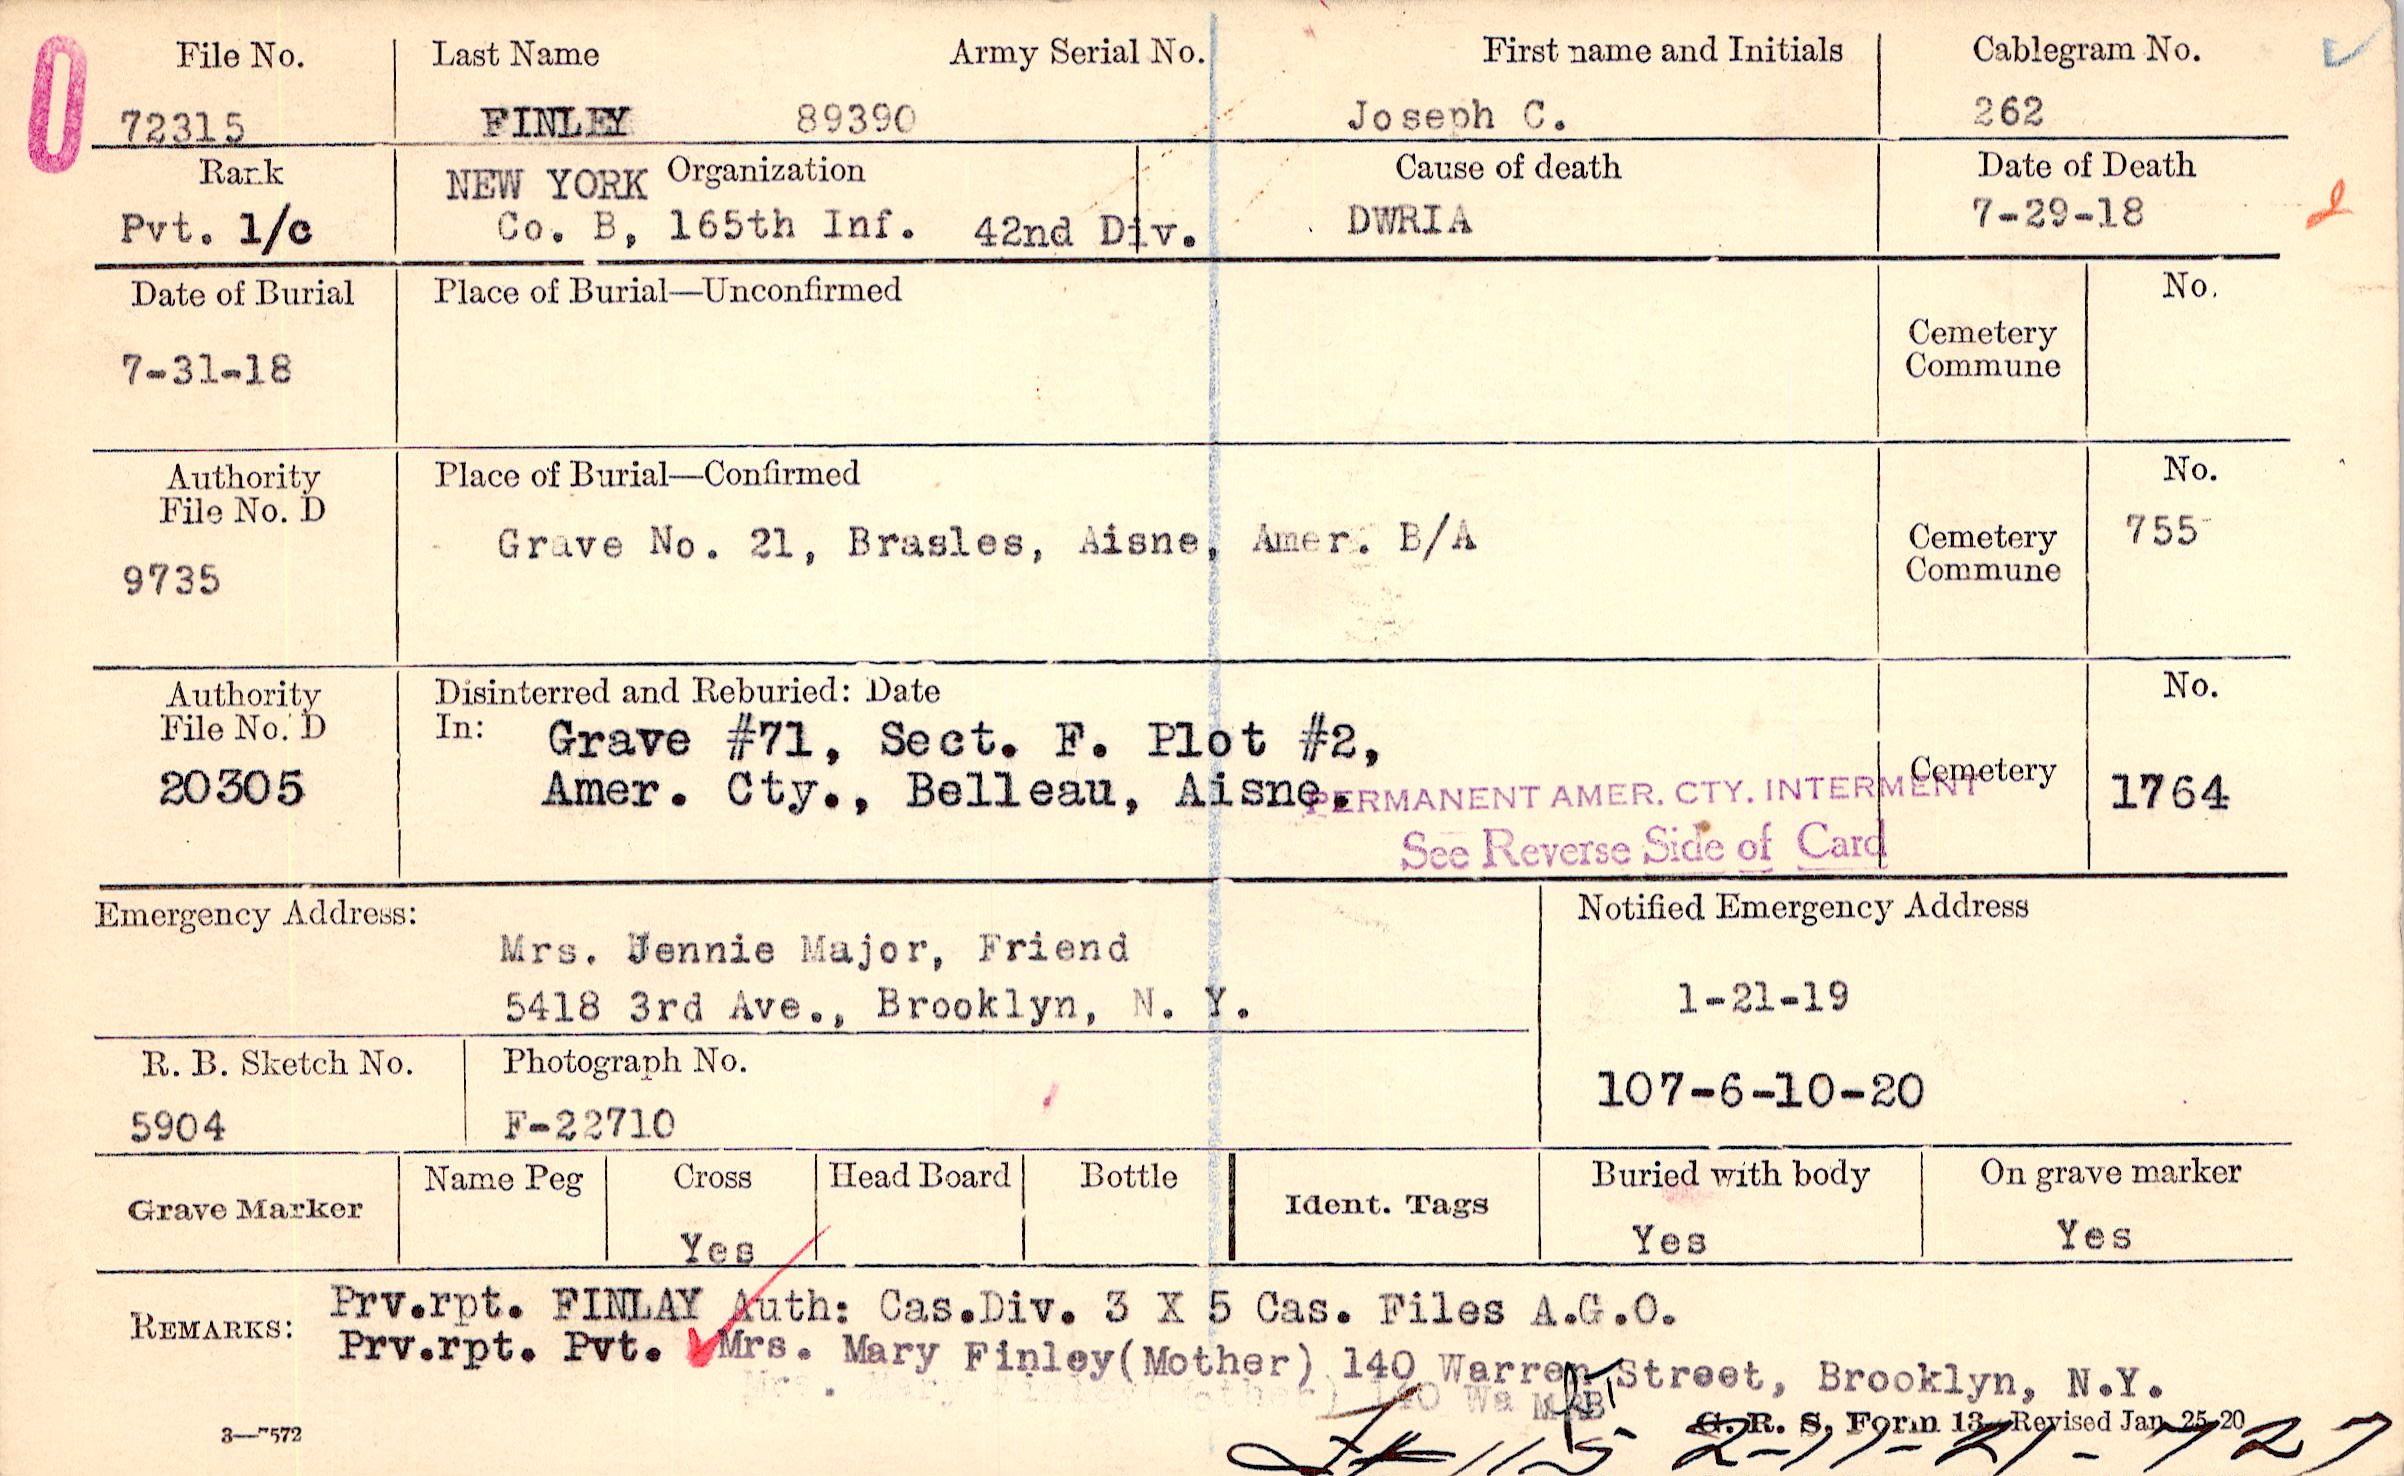 File No. Last Name Army Serial No. First name and Initials Cablegram No.
72315 FINLEY 89390 Joseph C. 262
Rank NEW YORK Organization Cause of death Date of Death
Pvt. 1/c Co. B, 165th Inf. 42nd Div. DWRIA 7-29-18
Date of Burial Place of Burial—Unconfirmed No.
Cemetery
Commune
7-31-18
Authority Place of Burial—Confirmed No.
File No. D
Grave No. 21, Brasles, Aisne, Amer. B/A Cemetery 755
Commune
9735
Authority Disinterred and Reburied: Date No.
File No. D In: Grave #71, Sect. F. Plot #2,
20305 Amer. Cty., Belleau, Aisne. Cemetery 1764
PERMANENT AMER. CTY. INTERMENT
See Reverse Side of Card
Emergency Address: Notified Emergency Address
Mrs. Jennie Major, Friend
5418 3rd Ave., Brooklyn, N. Y. 1-21-19
R. B. Sketch No. Photograph No. 107-6-10-20
5904 F-22710
Grave Marker Name Peg Cross Head Board Bottle Ident. Tags Buried with body On grave marker
Yes Yes Yes
REMARKS: Prv.rpt. FINLAY Auth: Cas.Div. 3 X 5 Cas. Files A.G.O.
Prv.rpt. Pvt. Mrs. Mary Finley(Mother) 140 Warren Street, Brooklyn, N.Y.
3—7572 G. R. S. Form 13—Revised Jan. 25-20